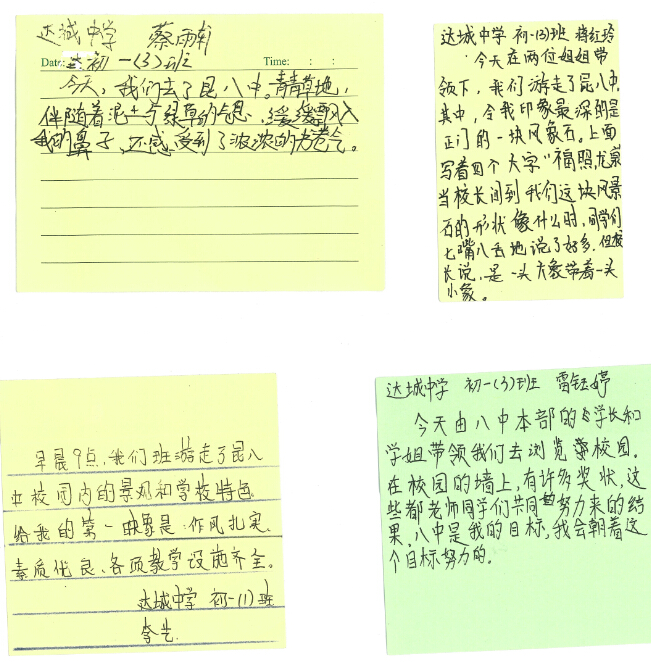 达城中学 蔡雨轩
Date: 初一(3)班 Time: : :
今天,我们去了昆八中。青青草地,
伴随着泥土与绿草的气息,缓缓飘入
我的鼻子,还感受到了浓浓的书卷气。
达城中学 初一(3)班 蒋红玲
今天在两位姐姐带
领下,我们游走了昆八中,
其中,令我印象最深的是
正门的一块风象石。上面
写着四个大字"福照龙泉
当校长问到我们这块风景
石的形状像什么时,同学们
七嘴八舌地说了好多.但校
长说,是一头大象带着一头
小象。
早晨9点,我们班游走了昆八
中校园内的景观和学校特色
给我的第一映象是:作风扎实、
素质优良、各项教学设施齐全。
达城中学 初一(1)班
达城中学 初一(3)班 雷钰婷
今天由八中本部的学长和
学姐带领我们去浏览校园.
在校园的墙上,有许多奖状,这
些都老师同学们共同努力来的结
果.八中是我的目标,我会朝着这
个目标努力的。